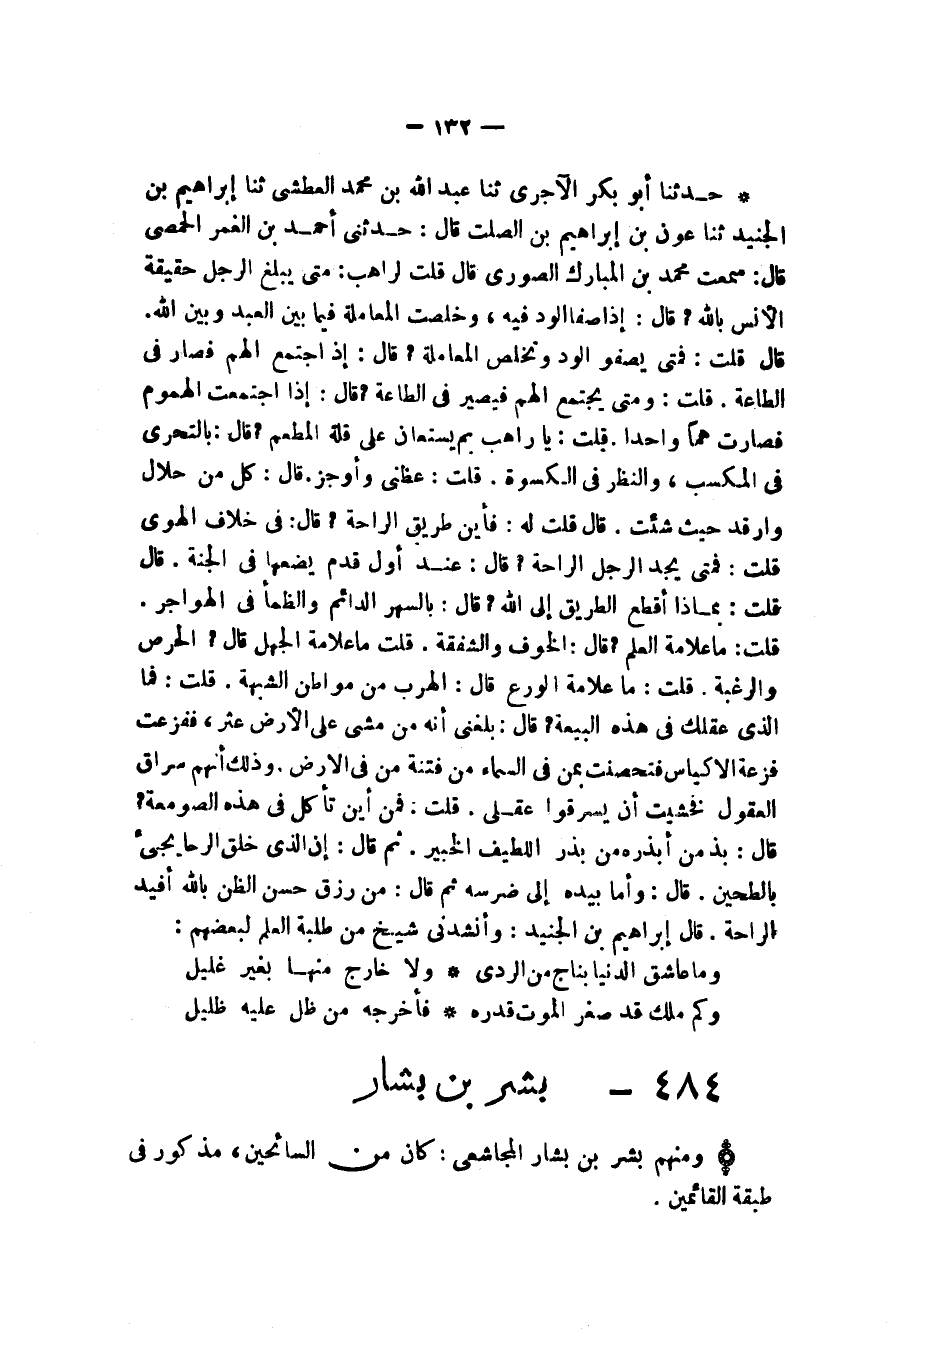 — ١٣٢ —
* حـدثنا أبو بكر الآجرى ثنا عبد الله بن محمد العطشى ثنا إبراهيم بن
الجنيد ثنا عون بن إبراهيم بن الصلت قال : حـدثنى أحمـد بن الغمر الحمصى
قال: سمعت محمد بن المبارك الصورى قال قلت لراهب: متى يبلغ الرجل حقيقة
الأنس بالله ؟ قال : إذا صفا الود فيه ، وخلصت المعاملة فيما بين العبد وبين الله.
قال قلت : فمتى يصفو الود وتخلص المعاملة ؟ قال : إذ اجتمع الهم فصار فى
الطاعة . قلت : ومتى يجتمع الهم فيصير فى الطاعة ؟ قال : إذا اجتمعت الهموم
فصارت هماً واحدا . قلت : يا راهب بم يستعان على قلة المطعم ؟ قال : بالتحرى
فى المكسب ، والنظر فى الكسوة . قلت : عظنى وأوجز . قال : كل من حلال
وارقد حيث شئت . قال قلت له : فأين طريق الراحة ؟ قال: فى خلاف الهوى
قلت : فمتى يجد الرجل الراحة ؟ قال : عنـد أول قدم يضعها فى الجنة . قال
قلت : بمـاذا أقطع الطريق إلى الله ؟ قال : بالسهر الدائم والظمأ فى الهواجر .
قلت: ما علامة العلم ؟ قال : الخوف والشفقة . قلت ما علامة الجهل قال ؟ الحرص
والرغبة . قلت : ما علامة الورع قال : الهرب من مواطن الشبهة . قلت : فما
الذى عقلك فى هذه البيعة ؟ قال : بلغنى أنه من مشى على الأرض عثر ، ففزعت
فزعة الاكياس فتحصنت بمن فى السماء من فتنة من فى الارض . وذلك أنهم سراق
العقول فخشيت أن يسرقوا عقـلى . قلت : فمن أين تأكل فى هذه الصومعة ؟
قال : بذ من أبذره من بذر اللطيف الخبير . ثم قال : إن الذى خلق الرحا يجىء
بالطحين . قال : وأما بيده إلى ضرسه ثم قال : من رزق حسن الظن بالله أفيد
الراحة . قال إبراهيم بن الجنيد : وأنشدنى شيخ من طلبة العلم لبعضهم :
وما عاشق الدنيا بناج من الردى * ولا خارج منهـا بغير غليل
وكم ملك قد صغر الموت قدره * فأخرجه من ظل عليه ظليل
٤٨٤ — بشر بن بشار
ومنهم بشر بن بشار المجاشعى : كان من السائحين ، مذكور فى
طبقة القائمين .